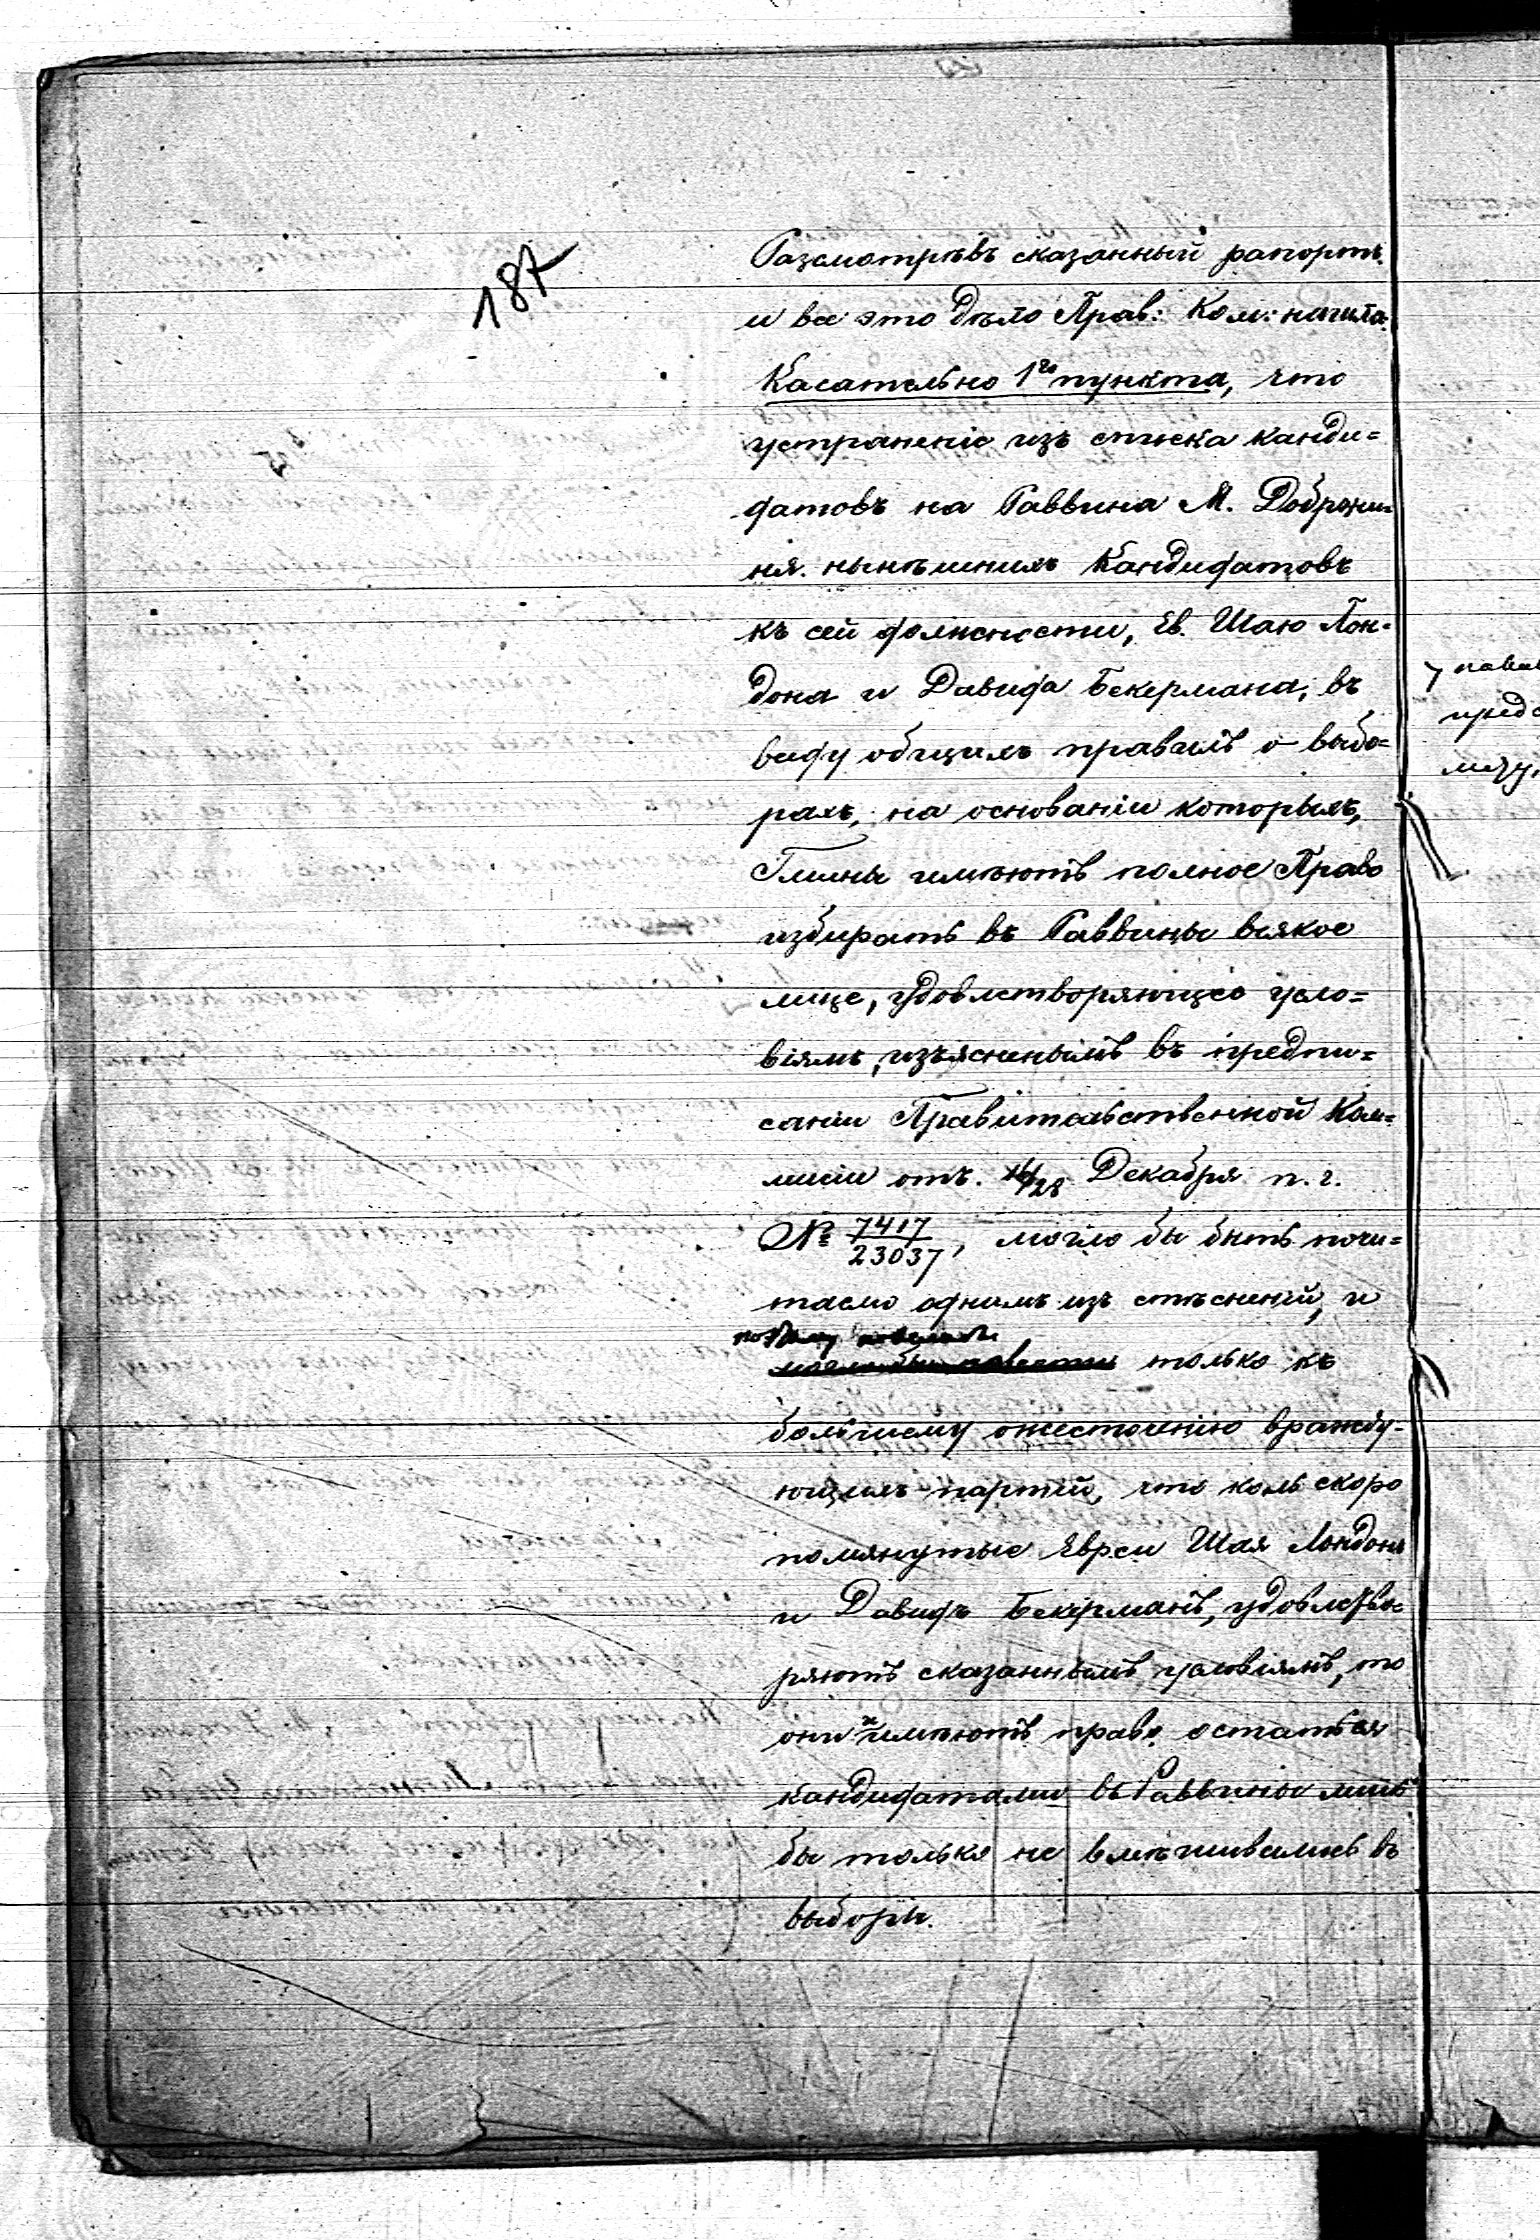 187
Разсмотрѣвъ сказанный рапортъ
и все это дѣло Прав: Ком: нашла:
Касательно 1го пункта, что
устраненіе изъ списка канди=
датовъ на Раввина М. Добржи=
ня. нынѣшнихъ Кандидатовъ
къ сей должности, Ев. Шаю Лон=
дона и Давида Бекермана, въ
виду общихъ правилъ о выбо=
рахъ, на основаніи которыхъ,
Гмины имѣютъ полное Право
избирать въ Раввины всякое
лице, удовлетворяющее усло=
віямъ, изъясненымъ въ предпи=
саніи Правительственной Ком=
мисіи отъ. 16/28 Декабря п. г.
№ 7417/23037, могло бы быть почи=
таемо однимъ изъ стѣсненій, и
поэтому
только къ
большему ожесточенію вражду=
ющихъ партій, что коль скоро
помянутые Евреи Шая Лондонъ
и Давидъ Бекерманъ, удовлетво=
ряютъ сказаннымъ условіямъ, то
они имѣютъ право остаться
кандидатами въ Раввины лишь
бы только не вмѣшивались въ
выборы.